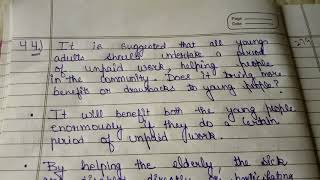 Page
Date
44.) It is suggested that all young
adults should undertake a period
of unpaid work, helping people
in the community. Does it bring more
benefits or drawbacks to young people?
• It will benefit both the young people
enormously if they do a certain
period of unpaid work.
• By helping the elderly, the sick